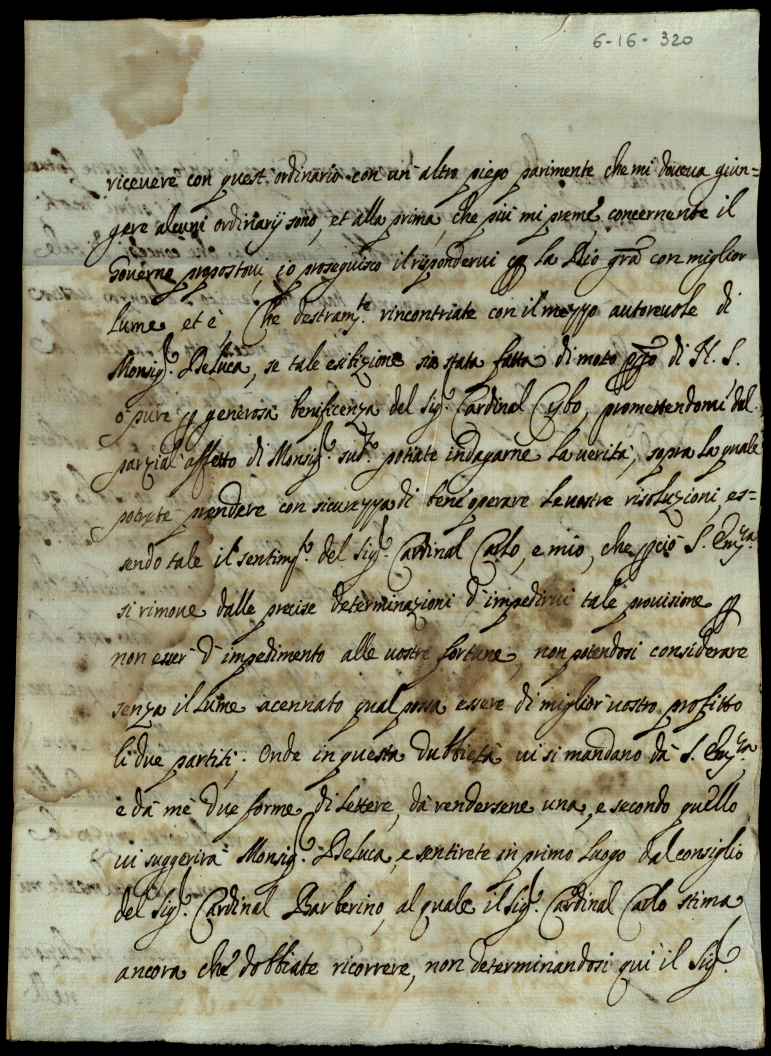 6-16-320
ricevere con quest. ordinario con un altro piego parimente che mi doveva giun=
gere alcuni ordinarij sono, et alla prima, che piu mi preme concernente il
Governo propostovi, io proseguisco il rispondervi la Dio gra con miglior
lume et è, Che destram.te rincontriate con il mezzo autorevole di
Monsig.r DeLuca, se tale esibizione sia stata fatta di moto di N. S.
o pure generosa beneficenza del Sig.r Cardinal Cybo, promettendomi dal
parzial affetto di Monsig.r sud.o potiate indagarne la verità, sopra la quale
potrete prendere con sicurezza di bene operare le vostre risoluzioni, es=
sendo tale il sentim.to del Sig.r Cardinal Carlo, e mio, che S. Em.za
si rimove dalle precise determinazioni d'impedirvi tale provisione
non esser d'impedimento alle vostre fortune, non potendosi considerare
senza il lume acennato qual possa essere di miglior vostro profitto
li due partiti. Onde in questa dubbietà vi si mandano da S. Em.za
e da me due forme di lettere, da rendersene una, e secondo quello
vi suggerirà Monsig.r DeLuca, e sentirete in primo luogo dal consiglio
del Sig.r Cardinal Barberino, al quale il Sig.r Cardinal Carlo stima
ancora che dobbiate ricorrere, non determinandosi qui il Sig.r